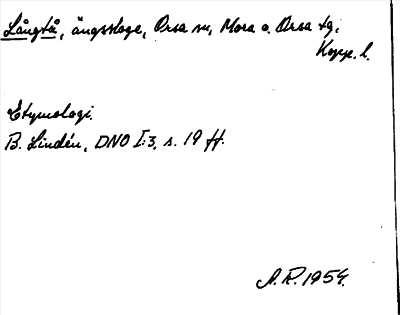 Långtå, ängsstoge, Orsa sn, Mora o. Orsa tg,
Kopp. l.
Etymologi.
B. Lindén, DNO I:3, s. 19 ff.
A.R. 1954.